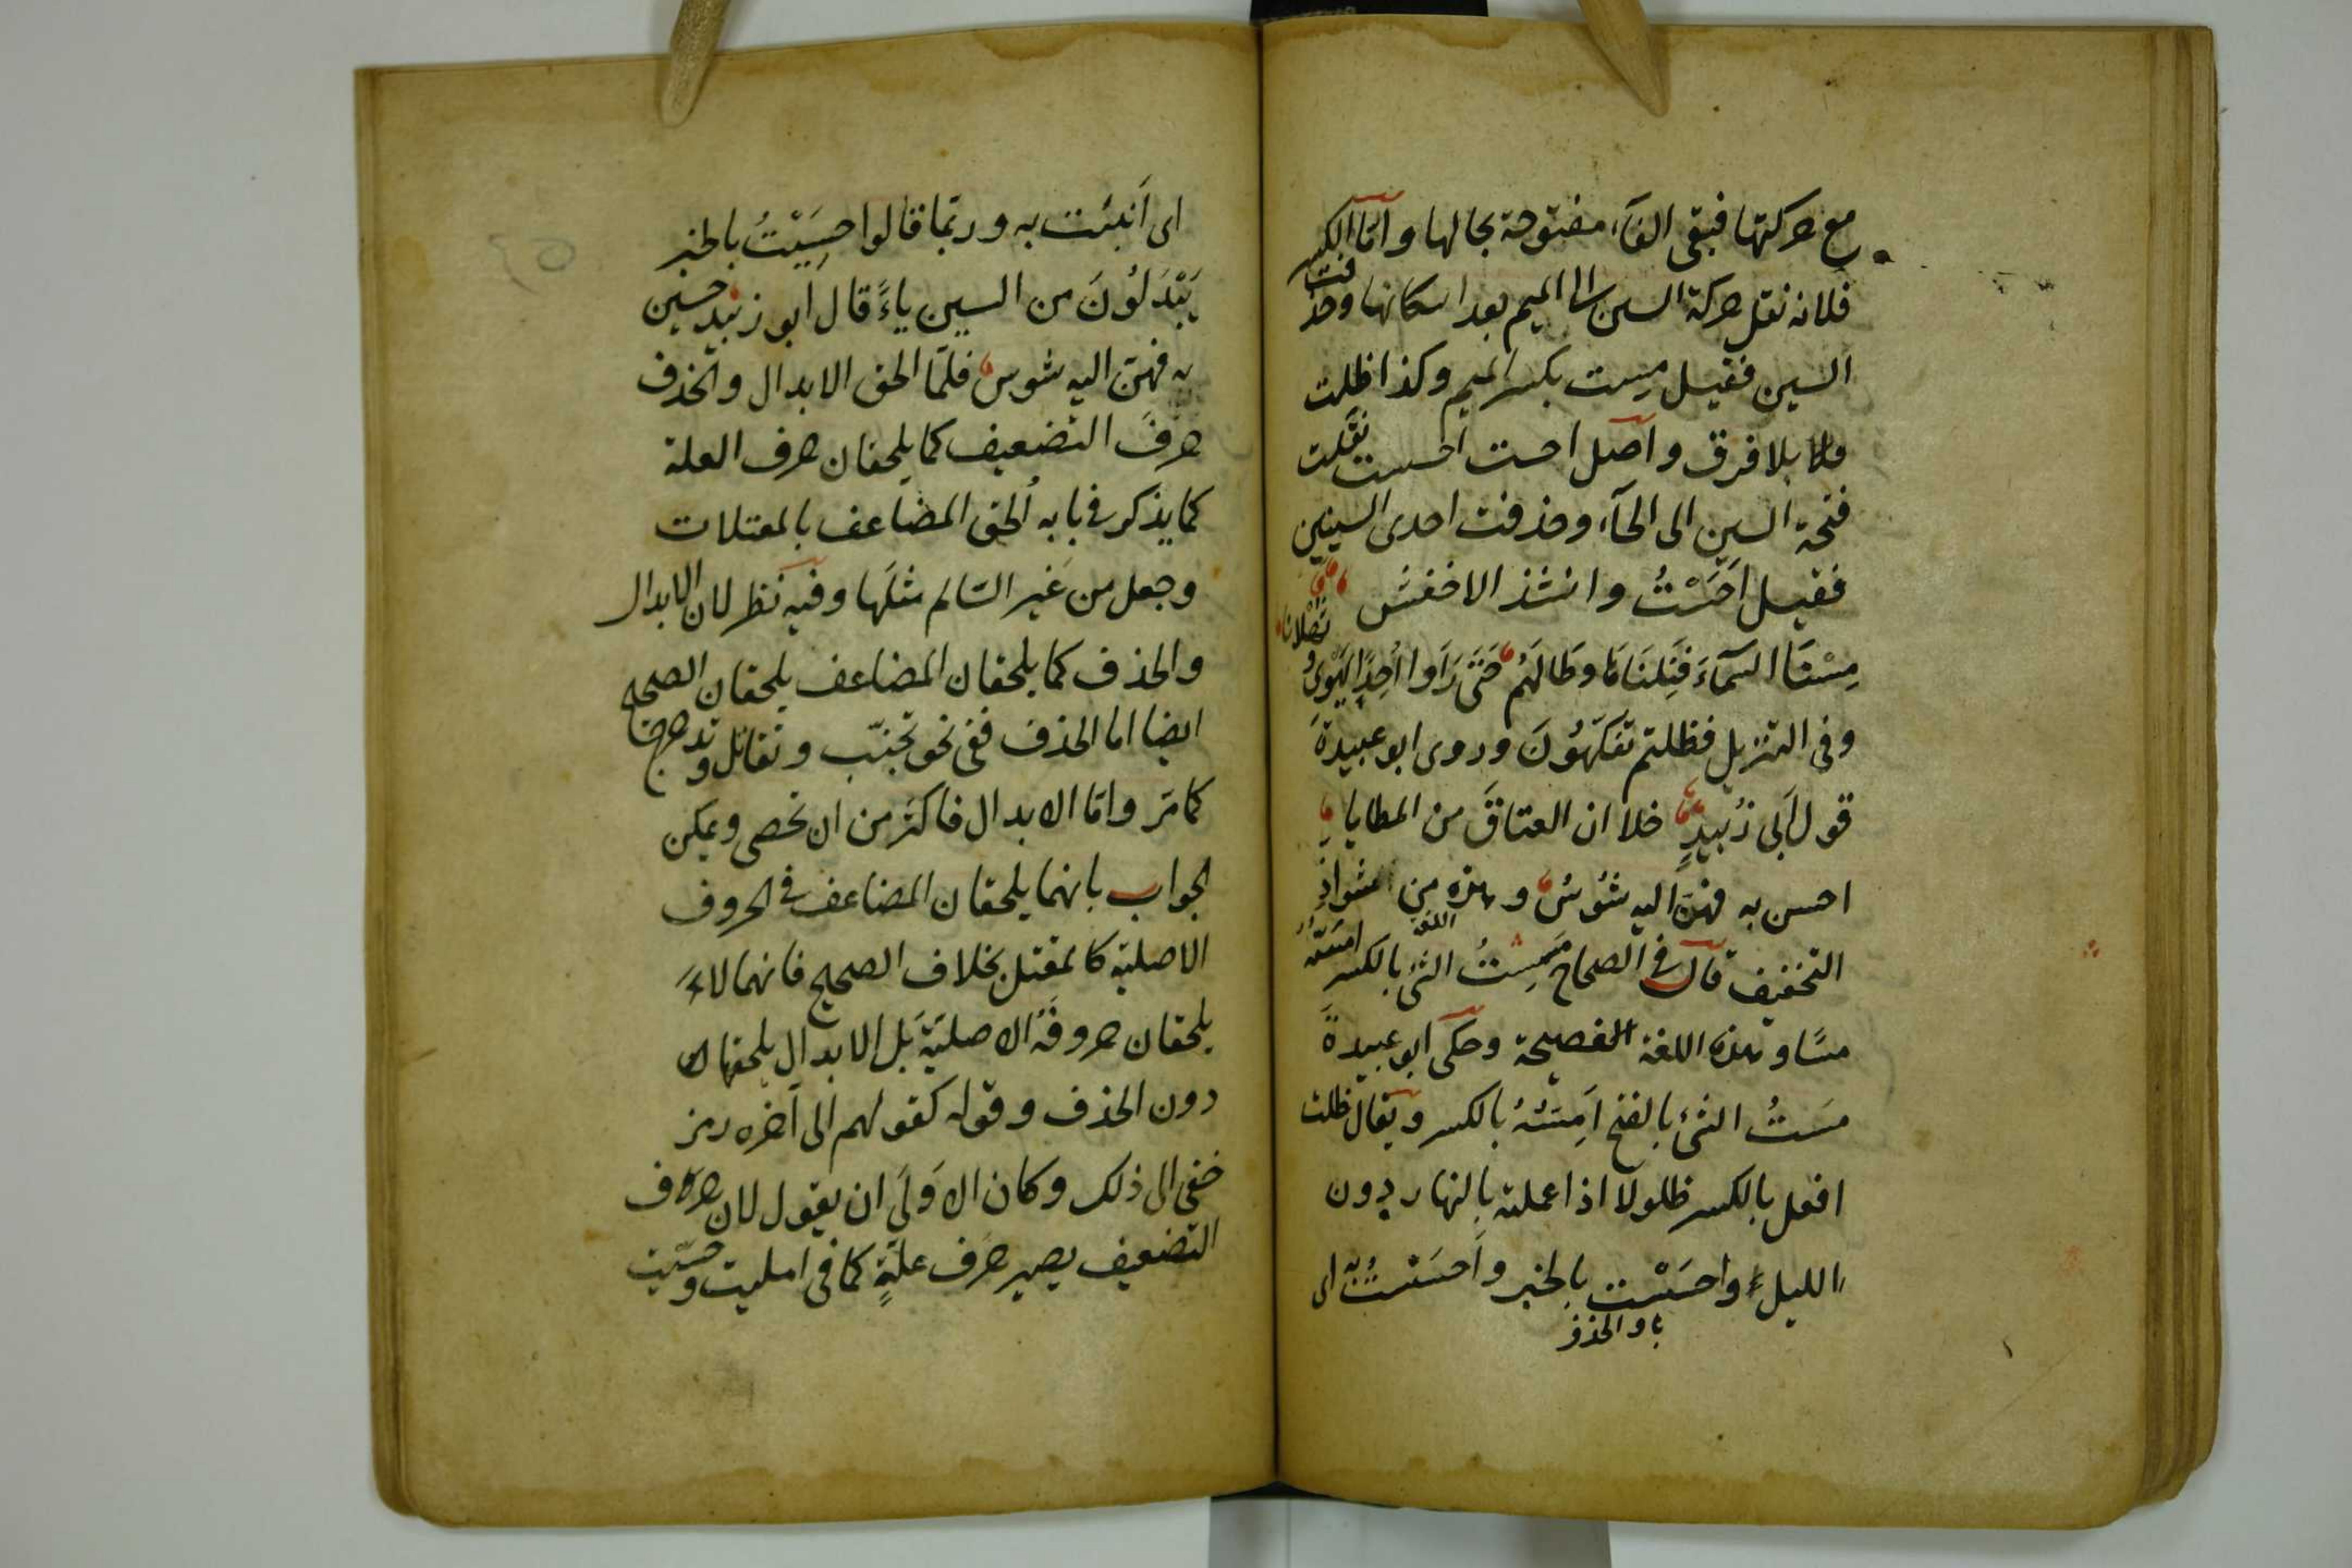 مع حركتها فبقى الفآء مفتوحة بحالها وامّا الكسر
فلانه نقل حركة السين الى الميم بعد اسكانها وحذفت
السين فقيل مِست بكسر الميم وكذا ظلت
بلا فرق واصل احست احسست نقلت
فتحة السين الى الحآء وحذفت احدى السينين
فقيل اَحَسْتُ وانشد الاخفش
مِسْنَا السَمآءَ فَنِلنَاهَا وطَالَهُم حَتى رَاَوا اُحُدًا يَهْوِى وثَهْلانَا
وفى التنزيل فظلتم تفكّهُونَ وروى ابو عبيدةَ
قول اَبى زُبيدٍ خلا ان العتاقَ من المطايا
احسن به فهنّ اليه شُوسُ وهذه من شواذِ
التخفيف قال فى الصحاح مَسِستُ الشئ بالكسر اَمَسّهُ
اللغة
مسًّا وهذه اللغة الفصيحة وحكى ابو عبيدةَ
مسَستُ الشئ بالفتح اَمِسُّهُ بالكسر ويقال ظلت
افعل بالكسر ظلولا اذا عملته بالنهار دون
الليل واحسَسْت بالخبر واَحسَسْتُ به اى
اى اَنبئت به وربّما قالوا حسِيْتُ بالخبر
يَبْدلُونَ من السين ياءً قال ابو زبيد حسين
به فهنّ اليه شوس فلمّا الحق الابدال والحذف
حرفَ التضعيف كما يلحقان حرف العلة
كما يذكر فى بابه اُلحق المضاعف بالمعتلات
وجعل من غير السّالم مثلها وفيه نظر لان الابدال
والحذف كما يلحقان المضاعف يلحقان الصحيح
ايضا اما الحذف ففى نحو تجنّب وتقاتل وتدحرج
كما مَرّ وامّا الابدال فاكثر من ان تحصى ويمكن
الجواب بانهما يلحقان المضاعف فى الحروف
الاصلية كالمعتل بخلاف الصحيح فانهما لا
يلحقان حروفَهُ الاصليّةَ بَل الابدال يلحقها
دون الحذف وقوله كقولهم الى اخره رمز
خفى الى ذلك وكان الاَولَى ان يقول لان حرف
التضعيف يصير حرَف علّةٍ كما فى امليت وحسِيْت